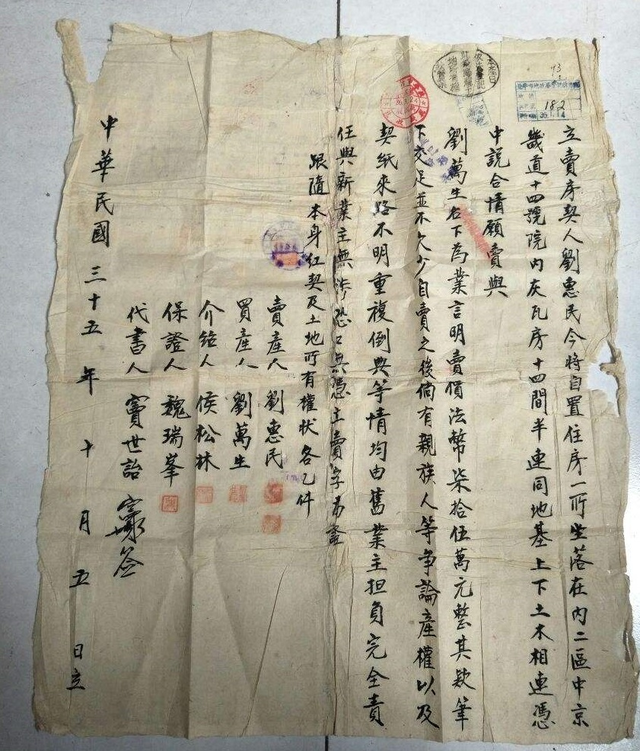 立賣房契人劉惠民今將自置住房一所坐落在內二區中京
畿道十四號院內灰瓦房十四間半連同地基上下土木相連憑
中說合情願賣與
劉萬生名下為業言明賣價法幣柒拾伍萬元整其款筆
下交足並不欠少自賣之後倘有親族人等爭論產權以及
契紙來路不明重複倒典等情均由舊業主担負完全責
任與新業主無涉恐口無憑立賣字為證
跟隨本身紅契及土地所有權狀各乙件
賣產人 劉惠民
買產人 劉萬生
介紹人 侯松林
保證人 魏瑞峯
代書人 竇世詒
中華民國 三十五年 十月 五日立
182